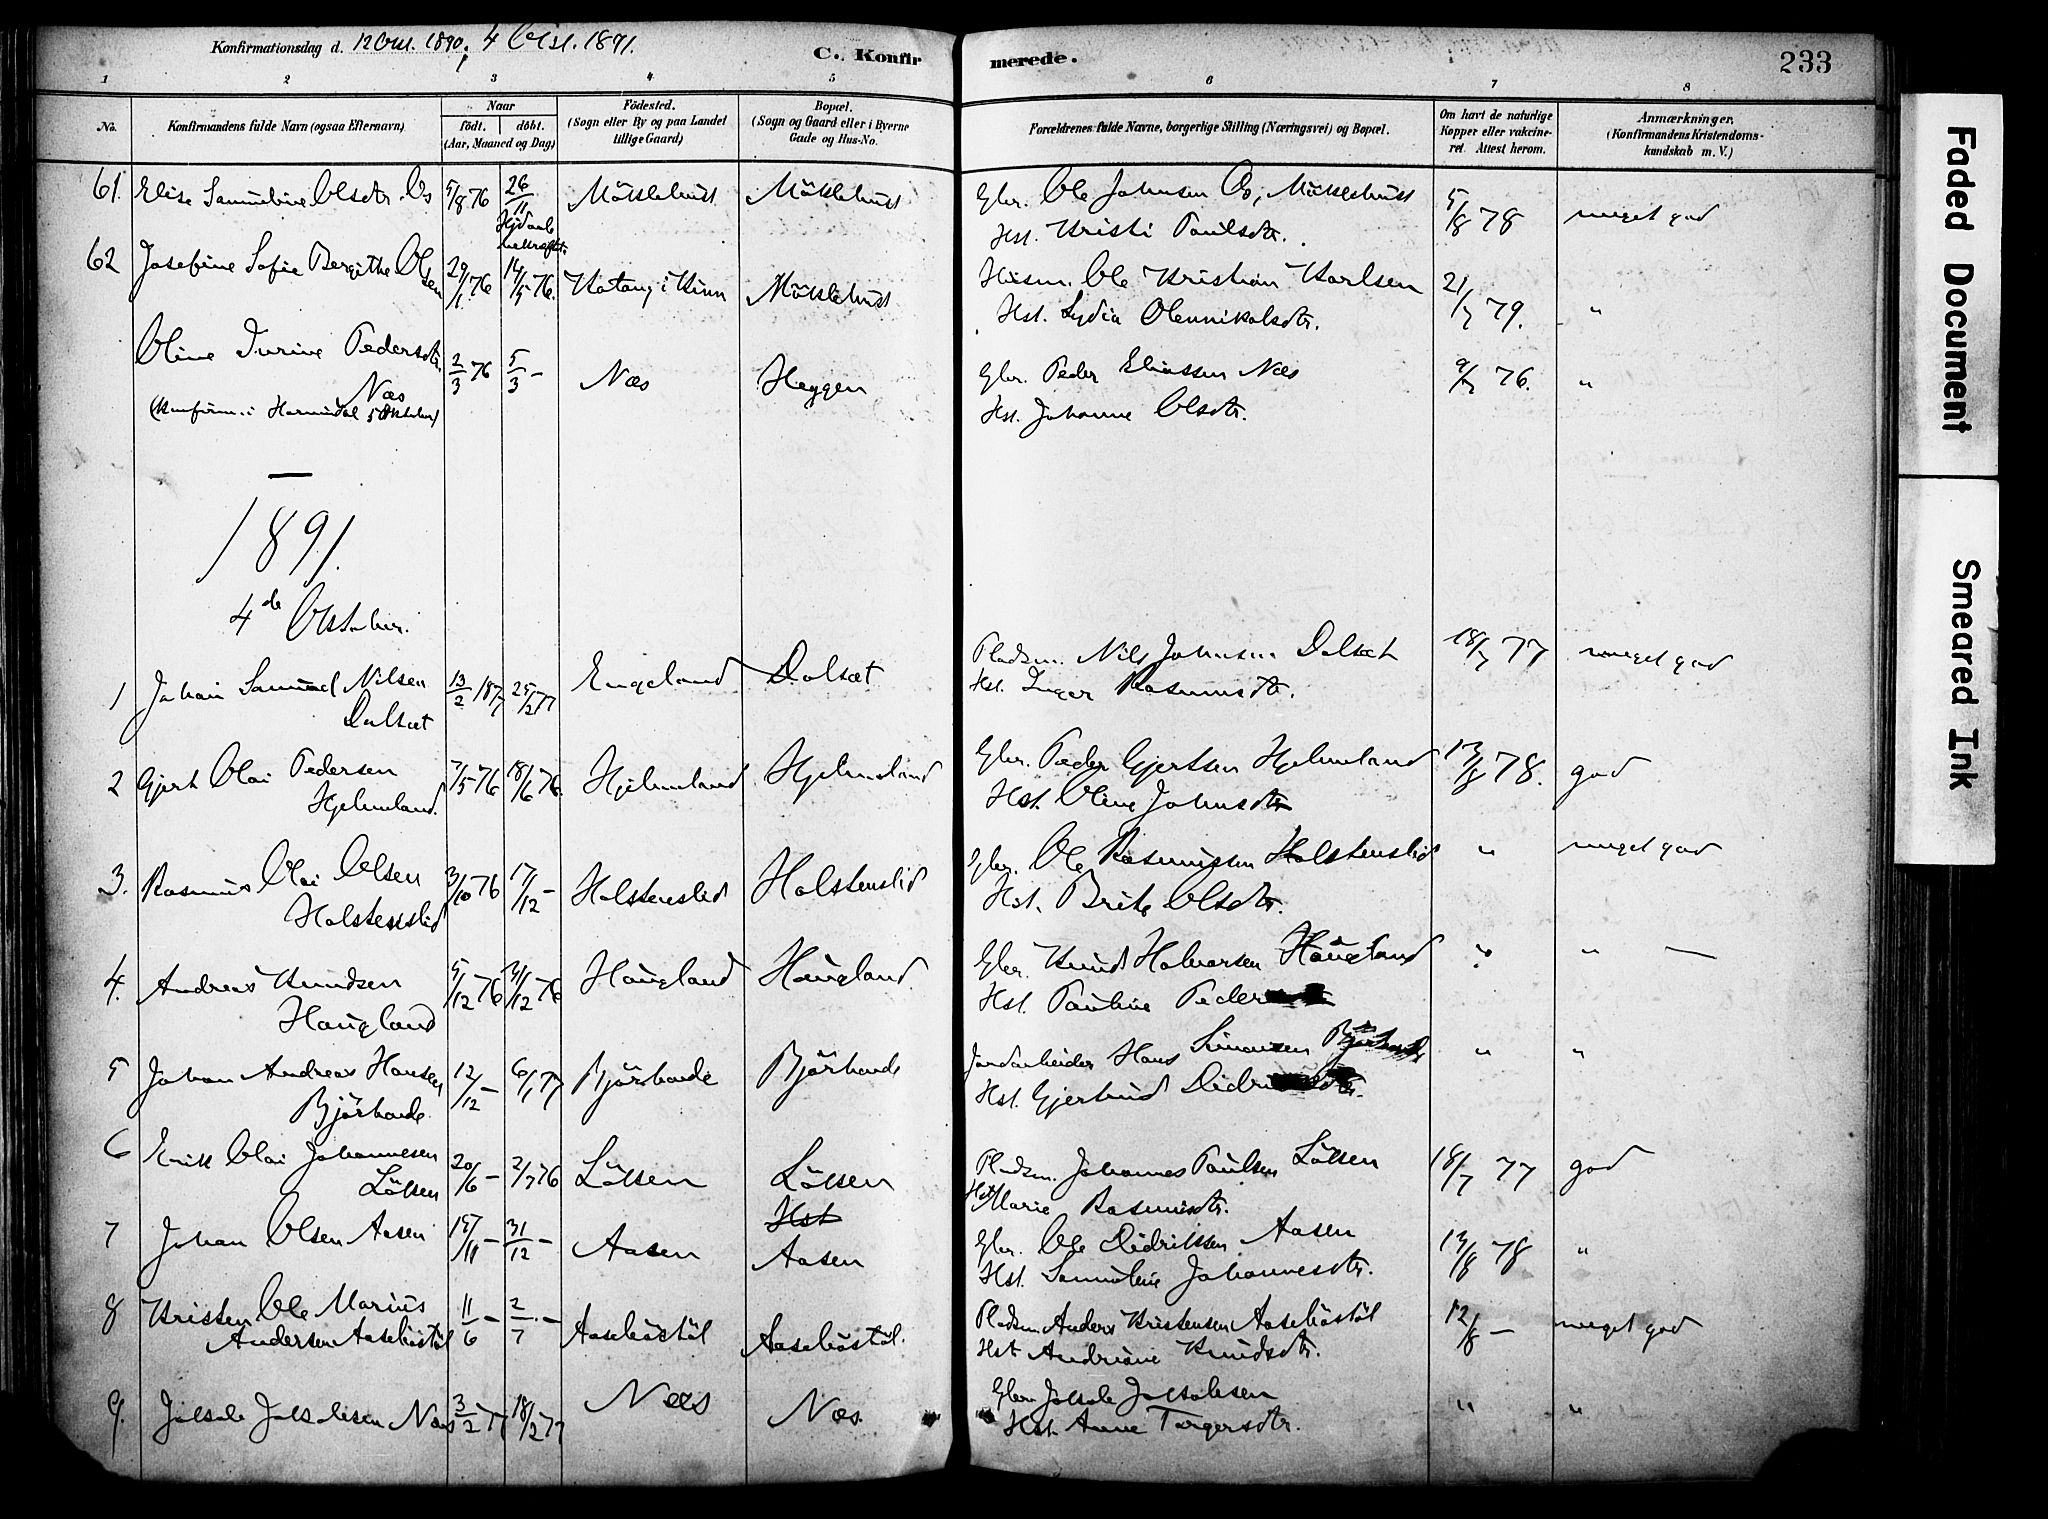 Konfirmationsdag d. 12 Okt. 1890, 4 Okt. 1891.
C. Konfirmerede.
233
1 2 3 4 5 6 7 8
No.
Konfirmandens fulde Navn (ogsaa Efternavn)
Naar
födt. döbt.
(Aar, Maaned og Dag)
Födested.
(Sogn eller By og paa Landet
tillige Gaard)
Bopæl.
(Sogn og Gaard eller i Byerne
Gade og Hus-No.
Forældrenes fulde Navne, borgerlige Stilling (Næringsvei) og Bopæl.
Om havt de naturlige
Kopper eller vakcine-
ret. Attest herom.
Anmærkninger.
(Konfirmandens Kristendoms-
kundskab m. V.)
61. Elise Samueline Olsdtr. Os 5/8 76 26/11 Möklebust Möklebust Gbr. Ole Johnsen Os, Möklebust 5/8 78 meget god
Hjdaab
bekræft.
Hst. Kristi Paulsdtr.
62 Josefine Sofie Bergithe Olsen 29/1 76 14/5 76. i Kinn Möklebust Husm. Ole Kristian Karlsen 21/7 79. "
Hst. Lydia Olennikolsdtr.
Oline Jurine Pedersdtr. 2/3 76 5/3 - Næs Heggen Gbr. Peder Eliassen Næs 9/7 76. "
Næs
(Konfirm. i Hornindal 5 Oktober)
Hst. Johanne Olsdtr.
1891.
4de Oktober.
1 Johan Samuel Nilsen 13/2 1877 25/2 77 Engeland Dalsæt Pladsm. Nils Johnsen Dalsæt 18/7 77 meget god
Dalsæt
Hst. Inger Rasmusdtr.
2 Gjert Olai Pedersen 7/5 76 18/6 76. Hjelmeland Hjelmeland Gbr. Peder Gjertsen Hjelmeland 13/8 78. god
Hjelmeland.
Hst. Oline Johnsdtr
3. Rasmus Olai Olsen 3/10 76 17/12 - Holstenslid Holstenslid Gbr. Ole Rasmussen Holstenslid " meget god
Holstenslid
Hst. Brite Olsdtr.
4. Andreas Knudsen 5/12 76 31/12 76 Haugland Haugland. Gbr. Knud Halvorsen Haugland " " —
Haugland
Hst. Pauline
5 Johan Andreas Hansen 12/12 - 6/1 77 Björhovde Björhovde Jordarbeider Hans Simonsen Björhovde " "
Björhovde
Hst. Gjertrud
6 Erik Olai Johannesen 20/6 - 2/7 76 Löken Löken Pladsm. Johannes Paulsen Löken 18/7 77 god
Löken
Hst Marie Rasmusdtr.
Hst
7 Johan Olsen Aasen 19/11 - 31/12 - Aasen Aasen Gbr. Ole Didriksen Aasen 13/8 78 "
Hst. Samueline Johannesdtr.
8 Kristen Ole Marius 11/6 - 2/7 - Aaseböstöl Aaseböstöl. Pladsm Anders Kristensen Aaseböstöl 12/8 - meget god
Andersen Aaseböstöl
Hst Andriane Knudsdtr.
9. Jakob Jakobsen Næs 3/2 77 18/2 77 Næs Næs Gbr. Jakob Jakobsen " "
Hst. Anne Torgersdtr.
Faded Document
Smeared Ink